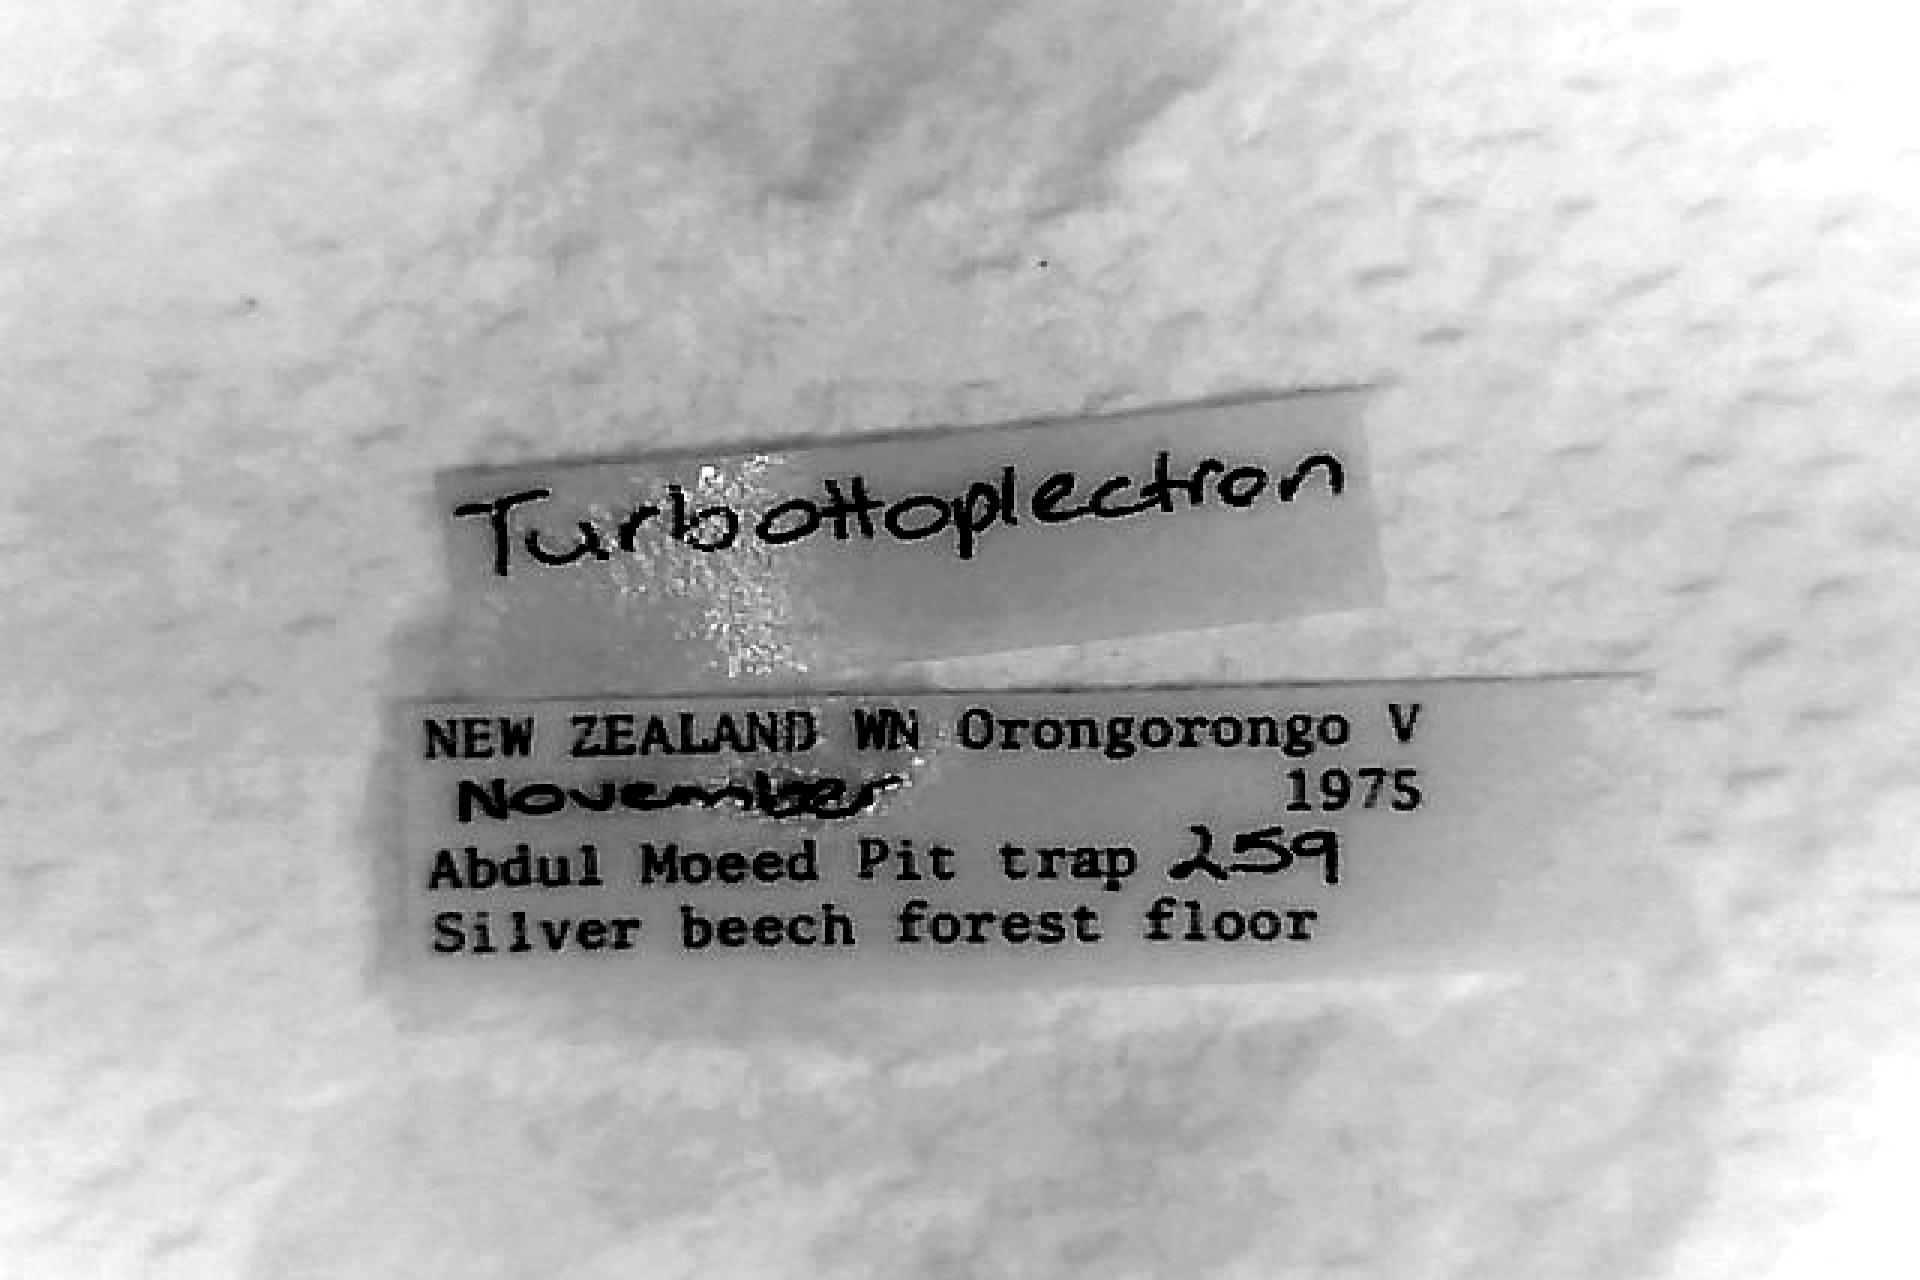 Turbottoplectron
NEW ZEALAND WN Orongorongo V
November 1975
Abdul Moeed Pit trap 259
Silver beech forest floor